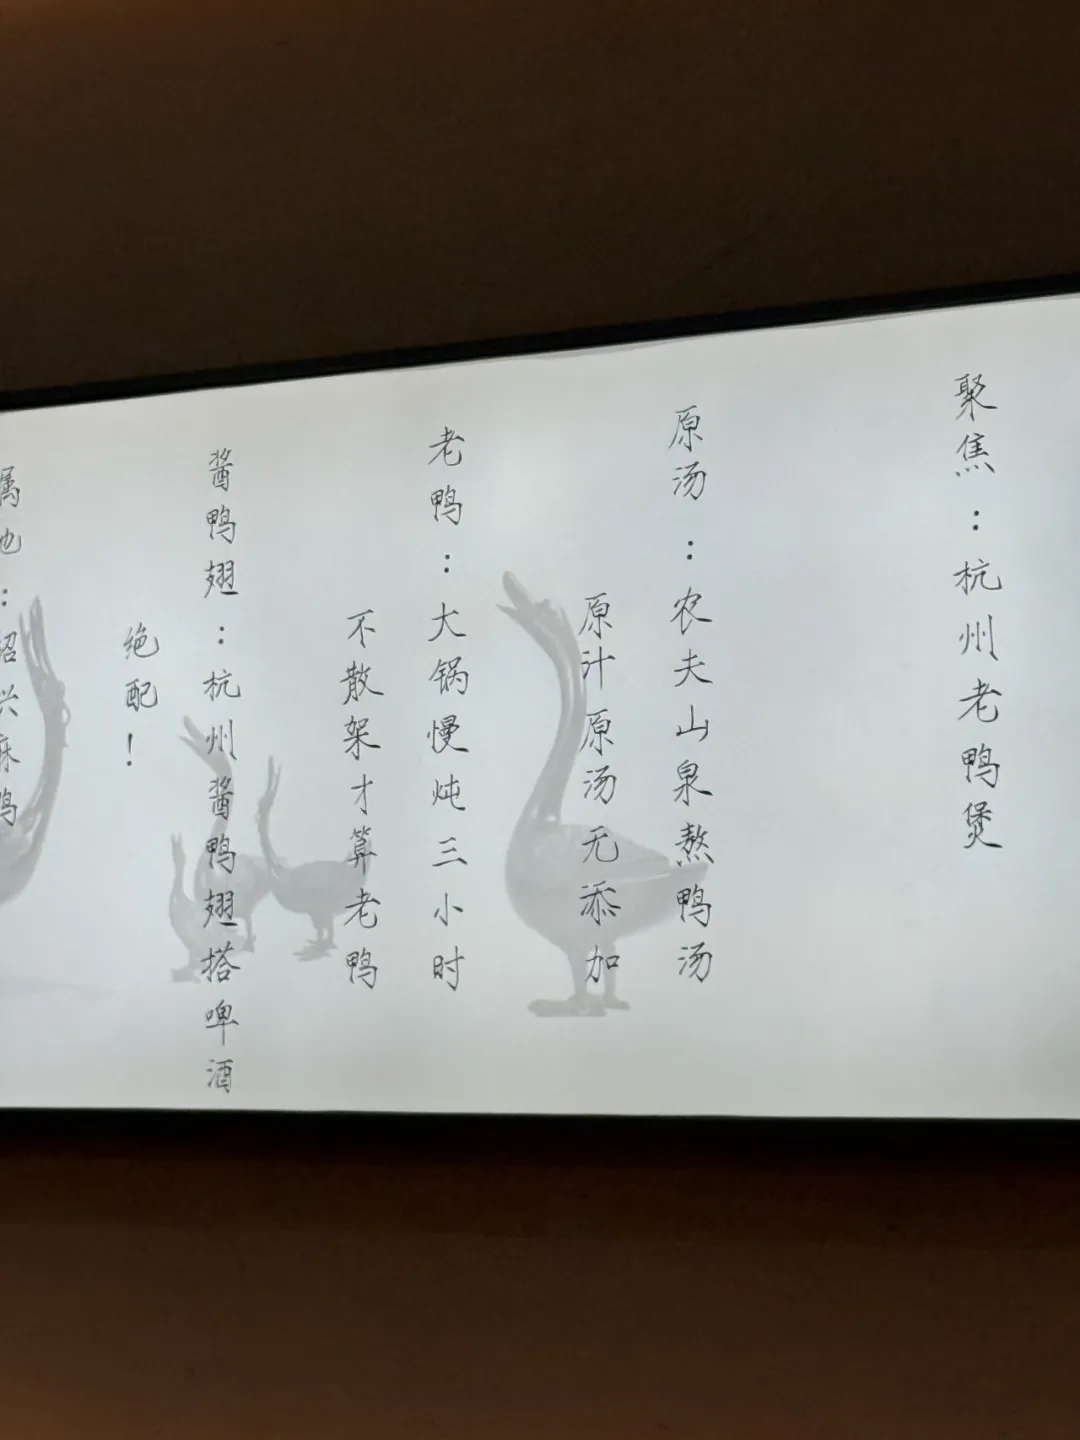 聚焦：杭州老鸭煲
原汤：农夫山泉熬鸭汤
原汁原汤无添加
老鸭：大锅慢炖三小时
不散架才算老鸭
酱鸭翅：杭州酱鸭翅搭啤酒
绝配！
属地：绍兴麻鸭